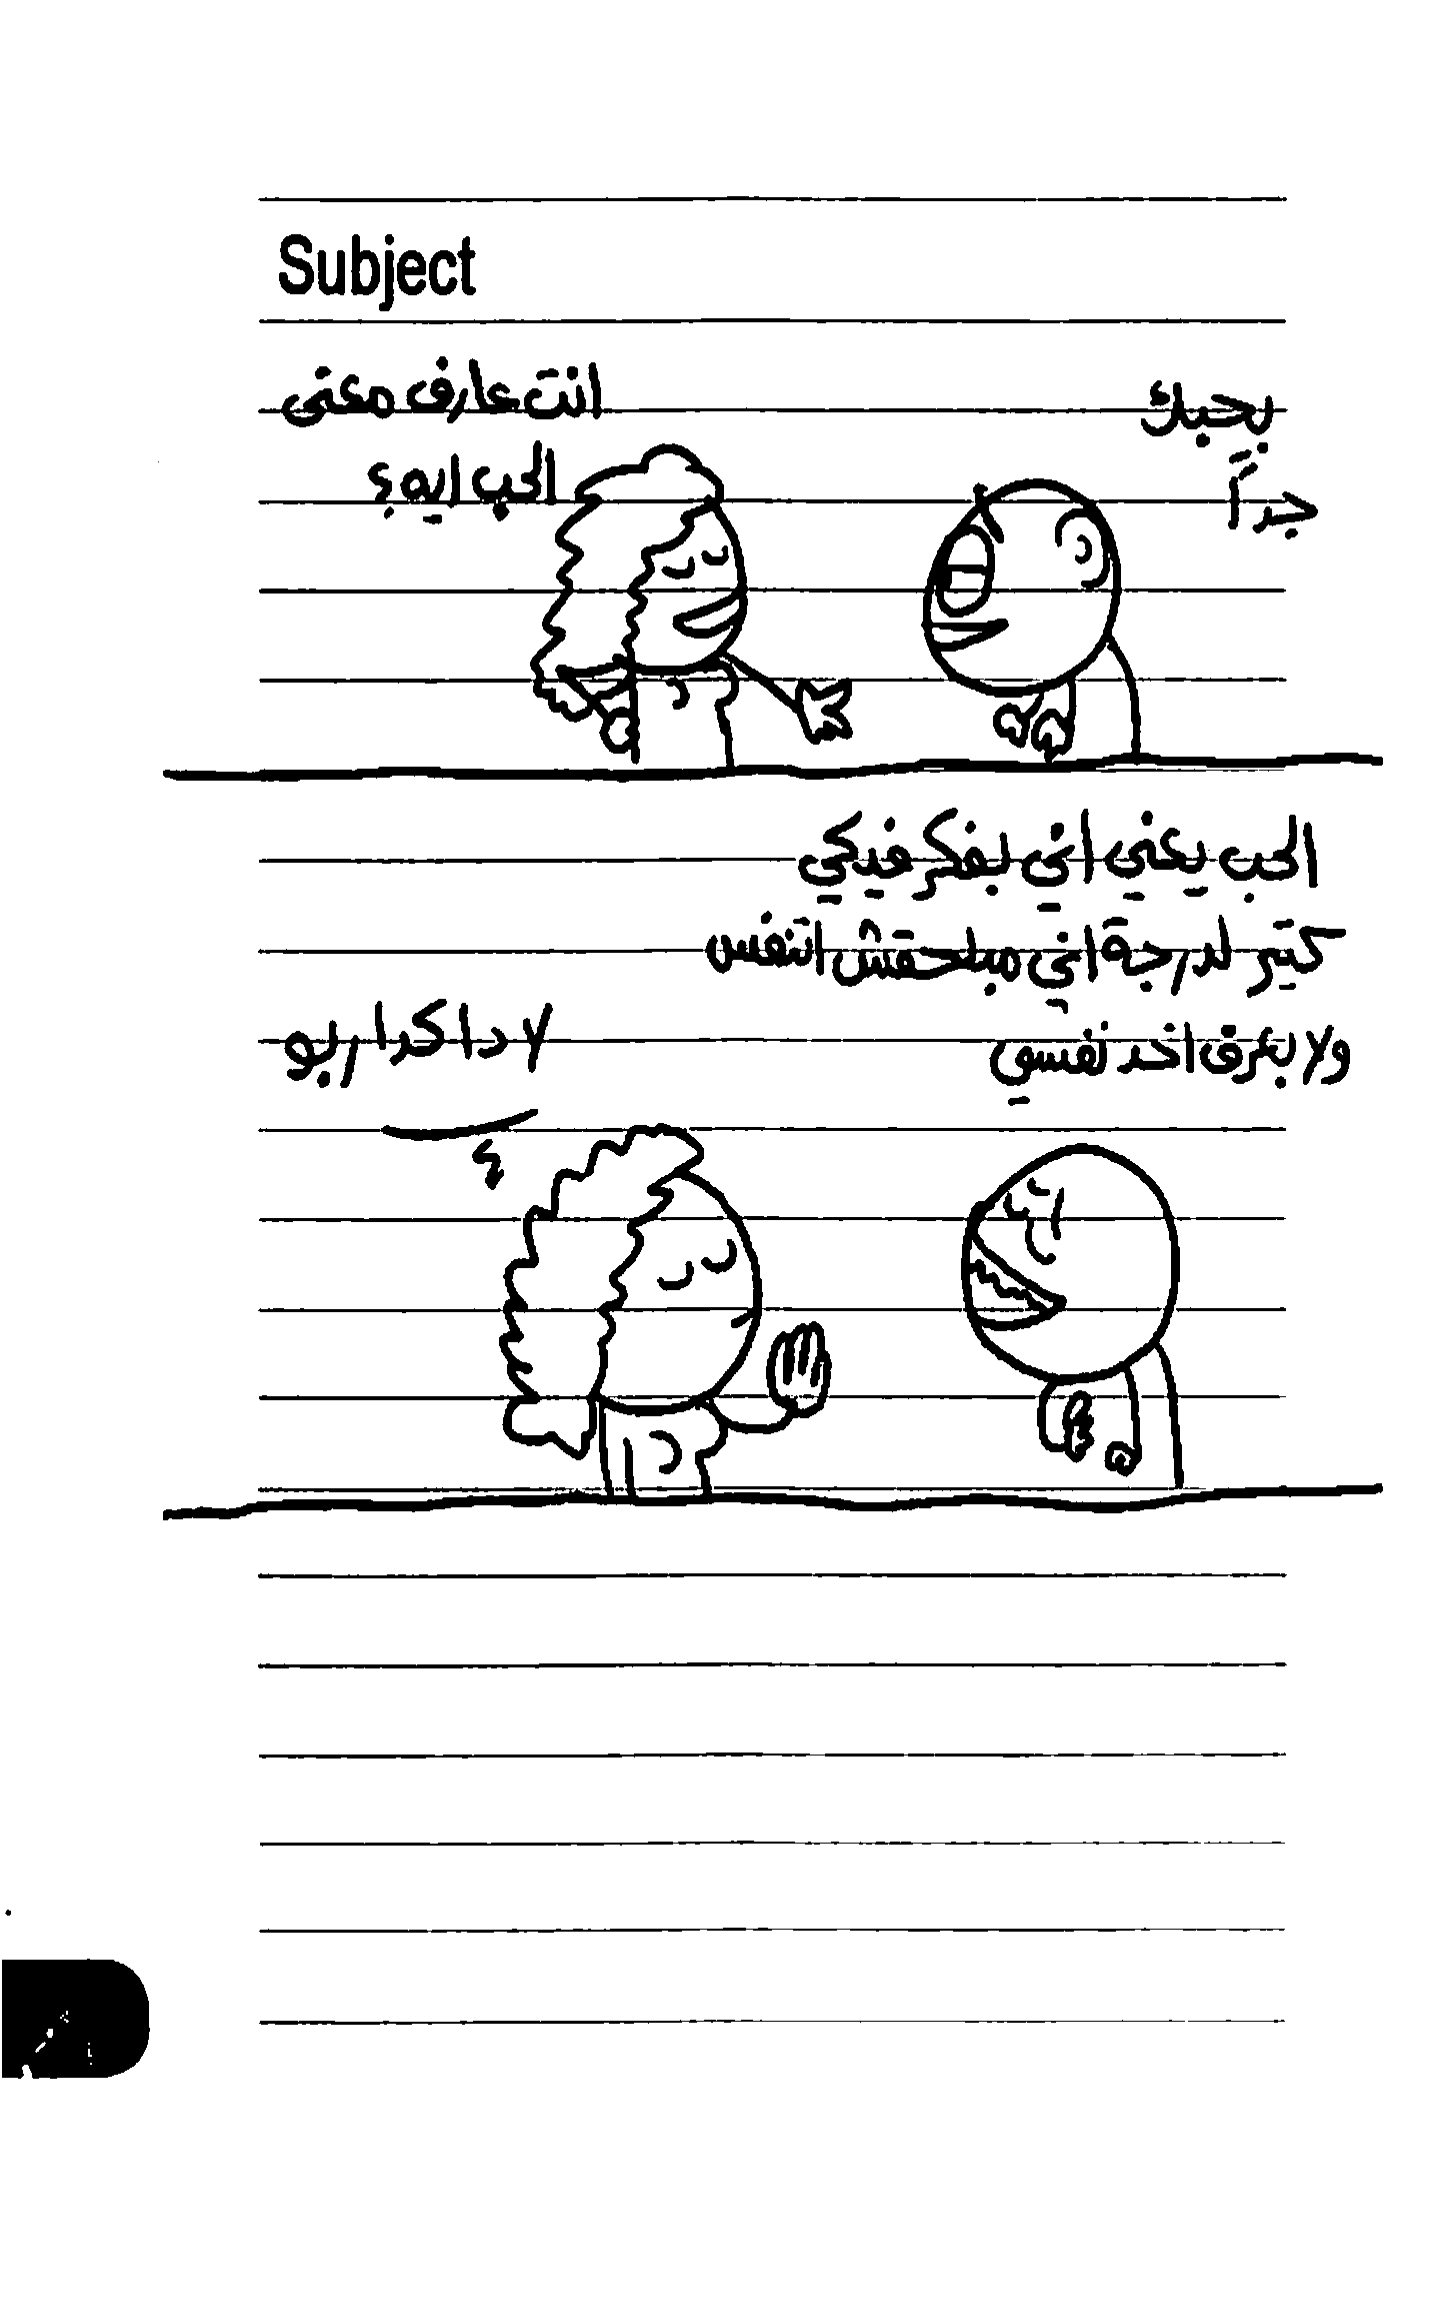 Subject
بحبك
جداً
انت عارف معنى
الحب ايه؟
الحب يعني اني بفكر فيكي
كتير لدرجة اني مبلحقش اتنفس
ولا بعرف اخد نفسي
لا دا كدا ربو